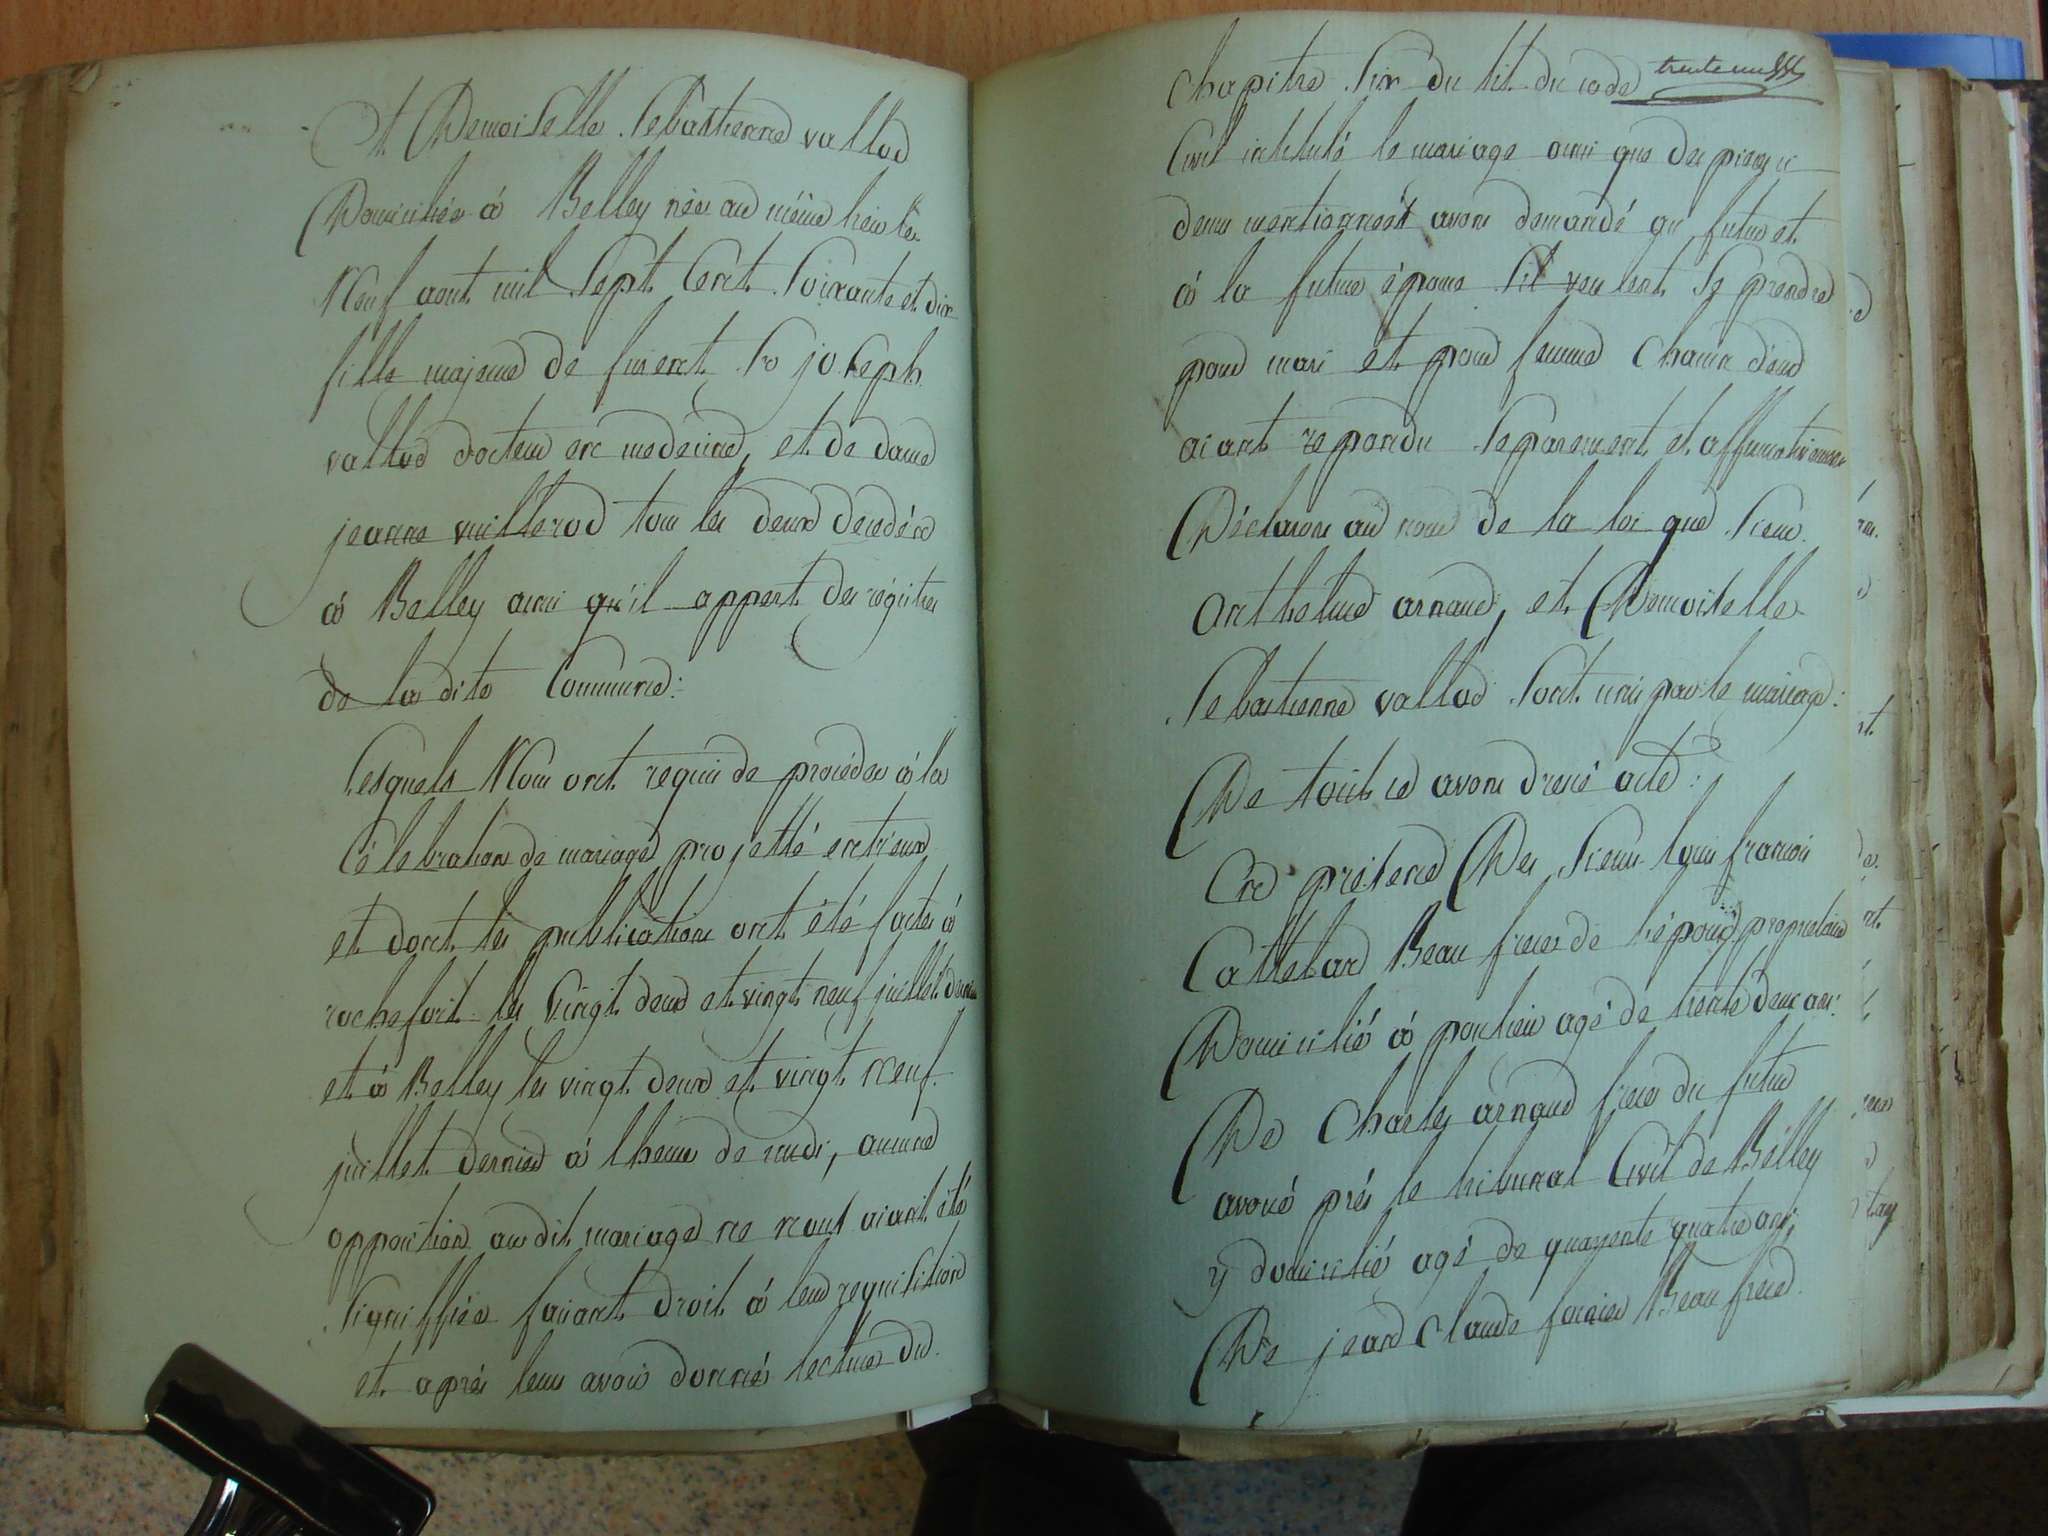 Et Demoiselle Sebastienne vallod
Domiciliée à Belley née au même lieu le
Neuf aout mil Sept Cent Soixante et dix
fille majeure de furent Sr joseph
vallod docteur en medecine, et de dame
jeanne vuillerod tous les deux decedés
à Belley ainsi qu'il appert des régitres
de la dite Commune:
Lesquels Nous ont requis de procéder à la
Célébration de mariage projetté entr'eux
et dont les publications ont été faites à
rochefort les Vingt deux et vingt neuf juillet dernier
et à Belley les vingt deux et vingt neuf
juillet dernier à lheure de midi, aucune
opposition au dit mariage ne nous aiant été
Signiffiée faisant droit à leur requisition
et après leurs avoir donnés lecture du
Chapitre Six du tit. du code
trente un
Civil intitulé le mariage ainsi que des pieces ci
dessus mentionnées avons demandé au futur et
à la future épouse S'il veulent Se prendre
pour mari et pour femme Chacun d'eux
aiant repondu Séparement et affirmativement
Déclarons au nom de la loi que Sieur
anthelme arnaud, et Demoiselle
Sebastienne vallod Sont unis par le mariage:
De tout ce avons dressé acte:
En présence Des Sieurs louis francois
Cattelard Beau frere de lépoux proprietaire
Domicilié à poulieu agé de trente deux ans:
De Charles arnaud frere du futur
avoué près le tribunal Civil de Belley
y domicilié agé de quarente quatre ans,
De jean Claude Beau frere